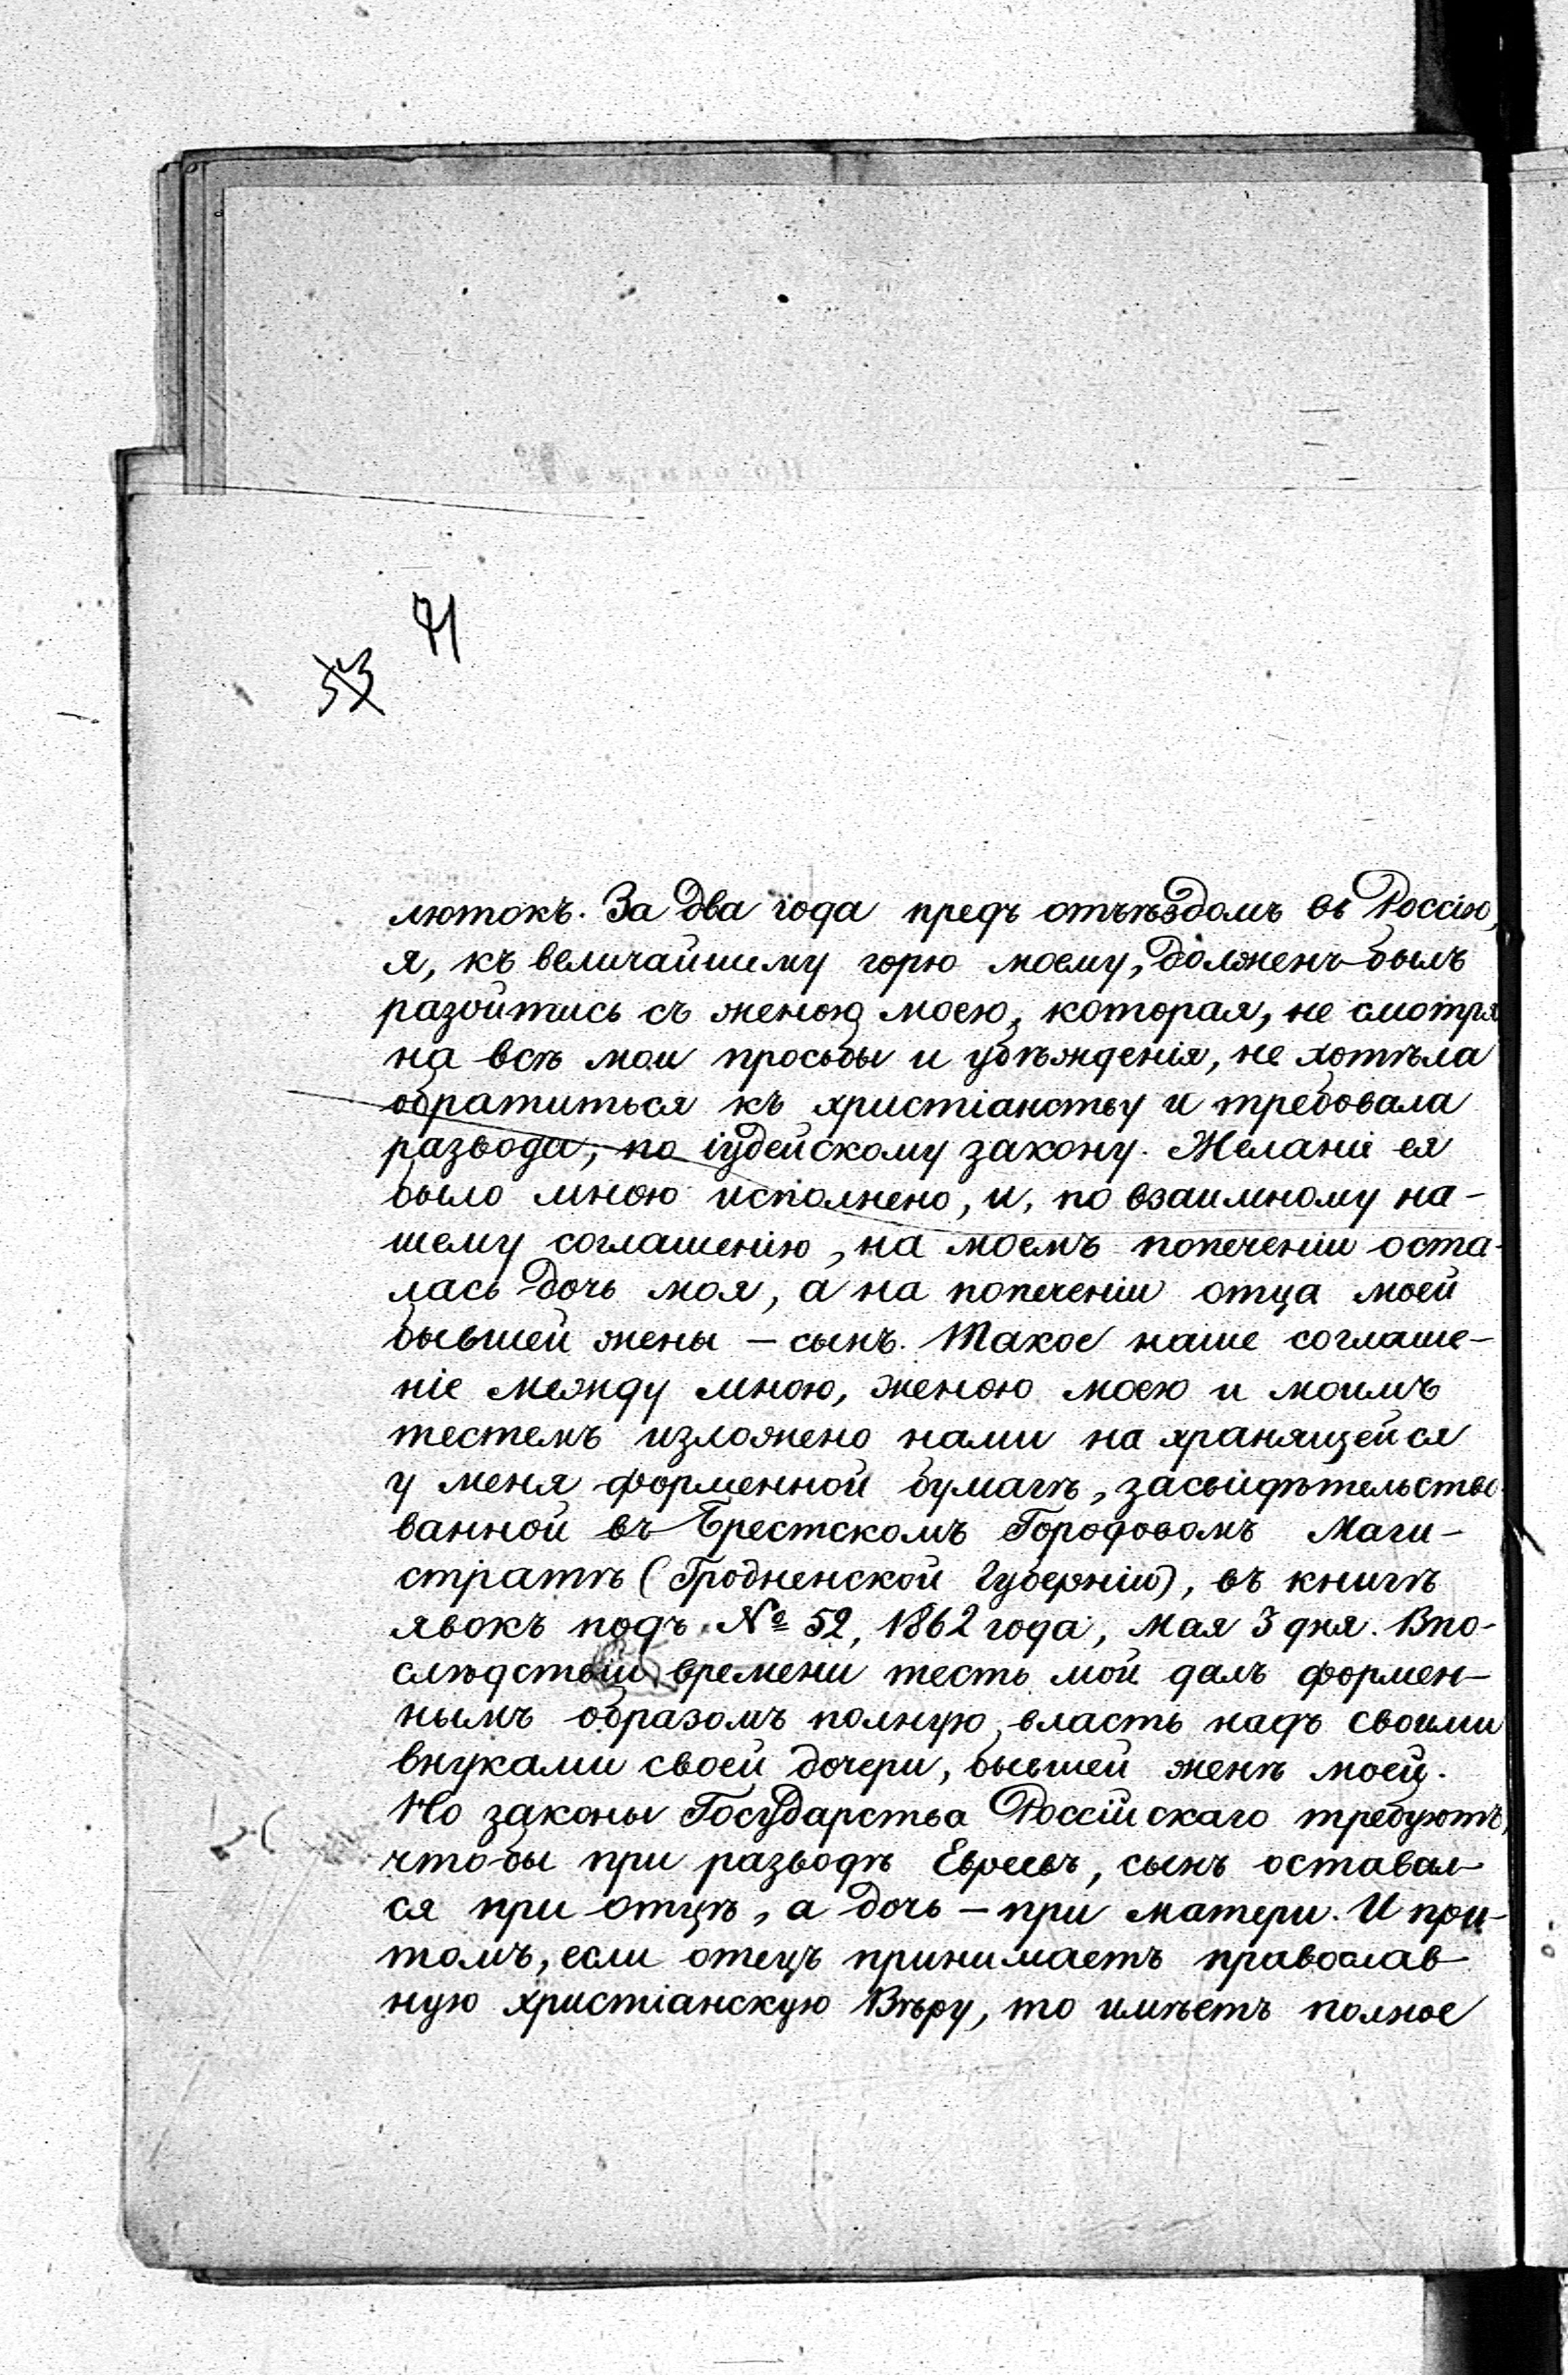 41
53
лютокъ. За два года предъ отъѣздомъ въ Россію,
я, къ величайшему горю моему, долженъ былъ
разойтись съ женою моею, которая, не смотря
на всѣ мои просьбы и убѣжденія, не хотѣла
обратиться къ христіанству и требовала
развода, по іудейскому закону. Желаніе ея
было мною исполнено, и, по взаимному на-
шему соглашенію, на моемъ попеченіи оста-
лась дочь моя, а на попеченіи отца моей
бывшей жены – сынъ. Такое наше соглаше-
ніе между мною, женою моею и моимъ
тестемъ изложено нами на хранящейся
у меня форменной бумагѣ, засвидѣтельство-
ванной въ Брестскомъ Городовомъ Маги-
стратѣ (Гродненской Губерніи), въ книгѣ
явокъ подъ № 52, 1862 года, Мая 3 дня. Впо-
слѣдствіи времени тесть мой далъ формен-
нымъ образомъ полную власть надъ своими
внуками своей дочери, бывшей женѣ моей.
Но законы Государства Россійскаго требуютъ,
чтобы при разводѣ Евреевъ, сынъ оставал-
ся при отцѣ, а дочь – при матери. И при-
томъ, если отецъ принимаетъ православ-
ную христіанскую Вѣру, то имѣетъ полное